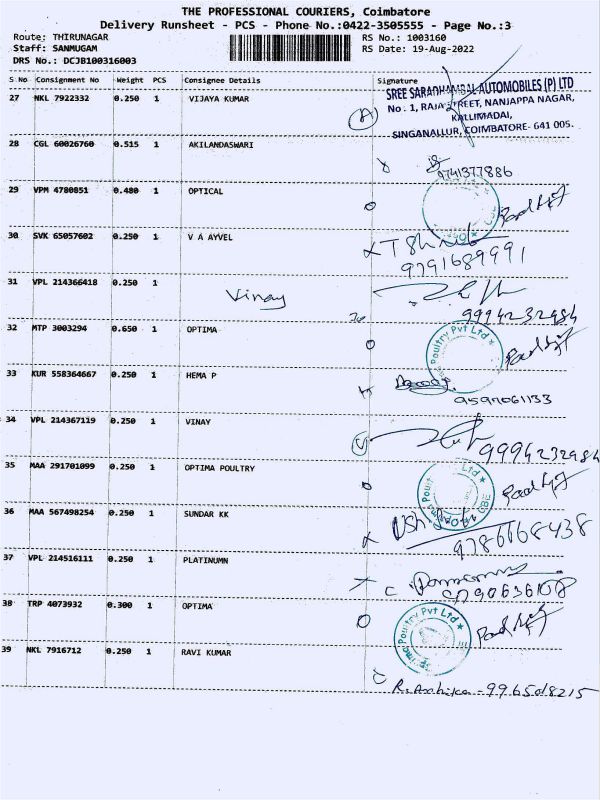 THE PROFESSIONAL COURIERS, Coimbatore
Delivery Runsheet - PCS - Phone No.:0422-3505555 - Page No.:3
Route: THIRUNAGAR
RS No.: 1003160
Staff: SANMUGAM
RS Date: 19-Aug-2022
DRS No.: DCJB100316003
S No Consignment No Weight PCS Consignee Details Signature
27 NKL 7922332 0.250 1 VIJAYA KUMAR
SREE SARADHAMBAL AUTOMOBILES (P) LTD
No : 1, RAJA STREET, NANJAPPA NAGAR,
KALLIMADAI,
SINGANALLUR, COIMBATORE- 641 005.
28 CGL 60026760 0.515 1 AKILANDASWARI
9741377886
29 VPM 4780851 0.480 1 OPTICAL
30 SVK 65057602 0.250 1 V A AYVEL
9791689991
31 VPL 214366418 0.250 1
Vinay
9994232984
32 MTP 3003294 0.650 1 OPTIMA
Poultry Pvt Ltd
33 KUR 558364667 0.250 1 HEMA P
9597061133
34 VPL 214367119 0.250 1 VINAY
9994232984
35 MAA 291701099 0.250 1 OPTIMA POULTRY
36 MAA 567498254 0.250 1 SUNDAR KK
9786668438
37 VPL 214516111 0.250 1 PLATINUMN
38 TRP 4073932 0.300 1 OPTIMA
Poultry Pvt Ltd
39 NKL 7916712 0.250 1 RAVI KUMAR